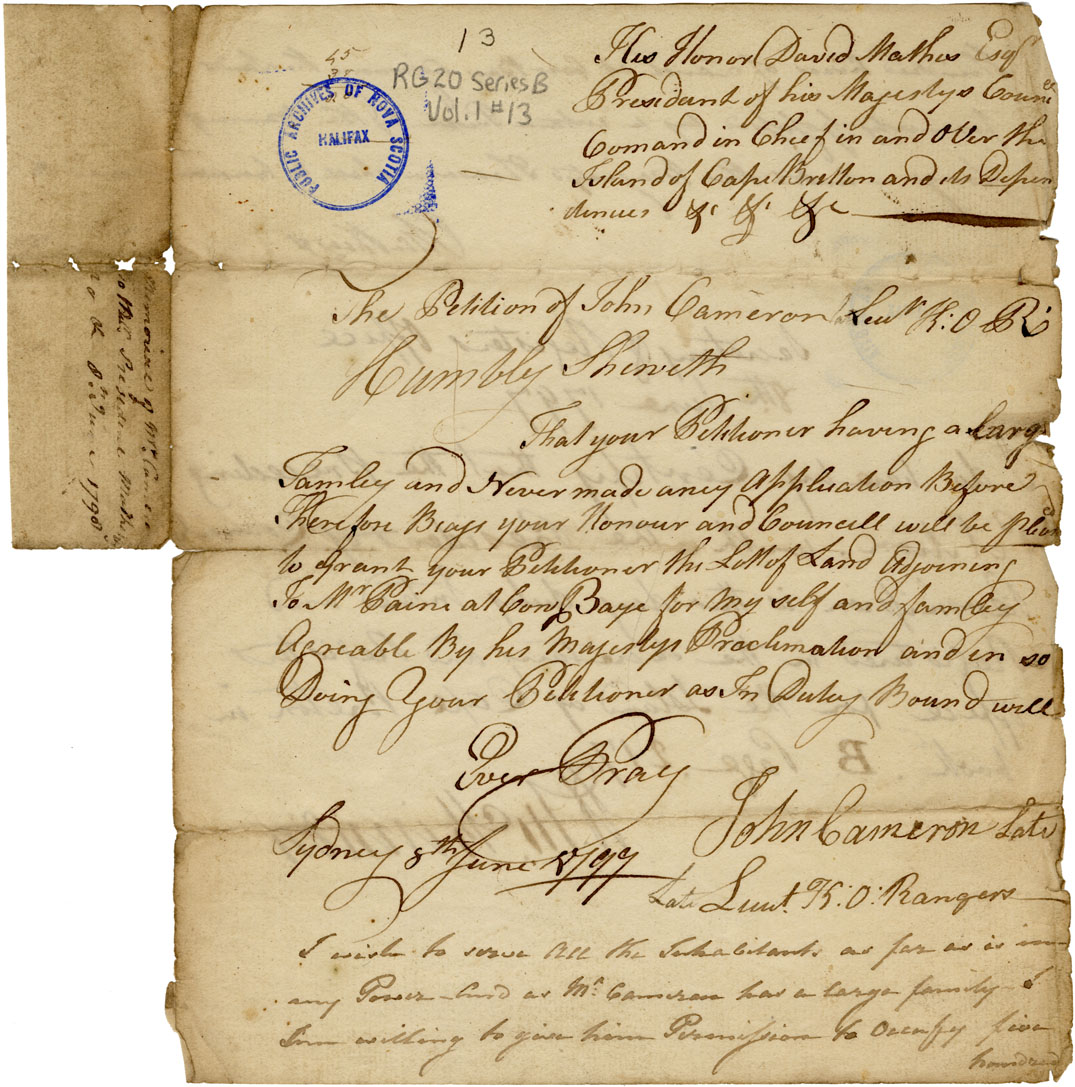 13
45
38
RG20 Series B
Vol. 1 #13
PUBLIC ARCHIVES OF NOVA SCOTIA
HALIFAX
His Honor David Mathes Esqr
President of his Majestys Counc
Comand in Cheif in and Over the
Island of Cape Bretton and its Depen
dences &c &c &c
The Petition of John Cameron Leut K: O R
Humbly Sheweth
That your Petitioner having a Larg
Famley and Never made aney Application Before
Therefore Beags your Honour and Councell will be pleas
to Grant your Petitioner the Lott of Land Adjoining
To Mr Paine at Cow Baye for my self and famley
Agreable By his Majestys Proclmation and in so
Doing Your Petitioner as In Duty Bound will
Ever Pray
John Cameron Late
Sydney 8th June 1797
Late Lieut. K: O: Rangers
I wish to serve All the Inhabitants as far as is in
my Power And as Mr Cameron has a large family I
am willing to give him Permission to Occupy five
hundred
Memoire of Mr Camero
to President Mathes
8th June 1798